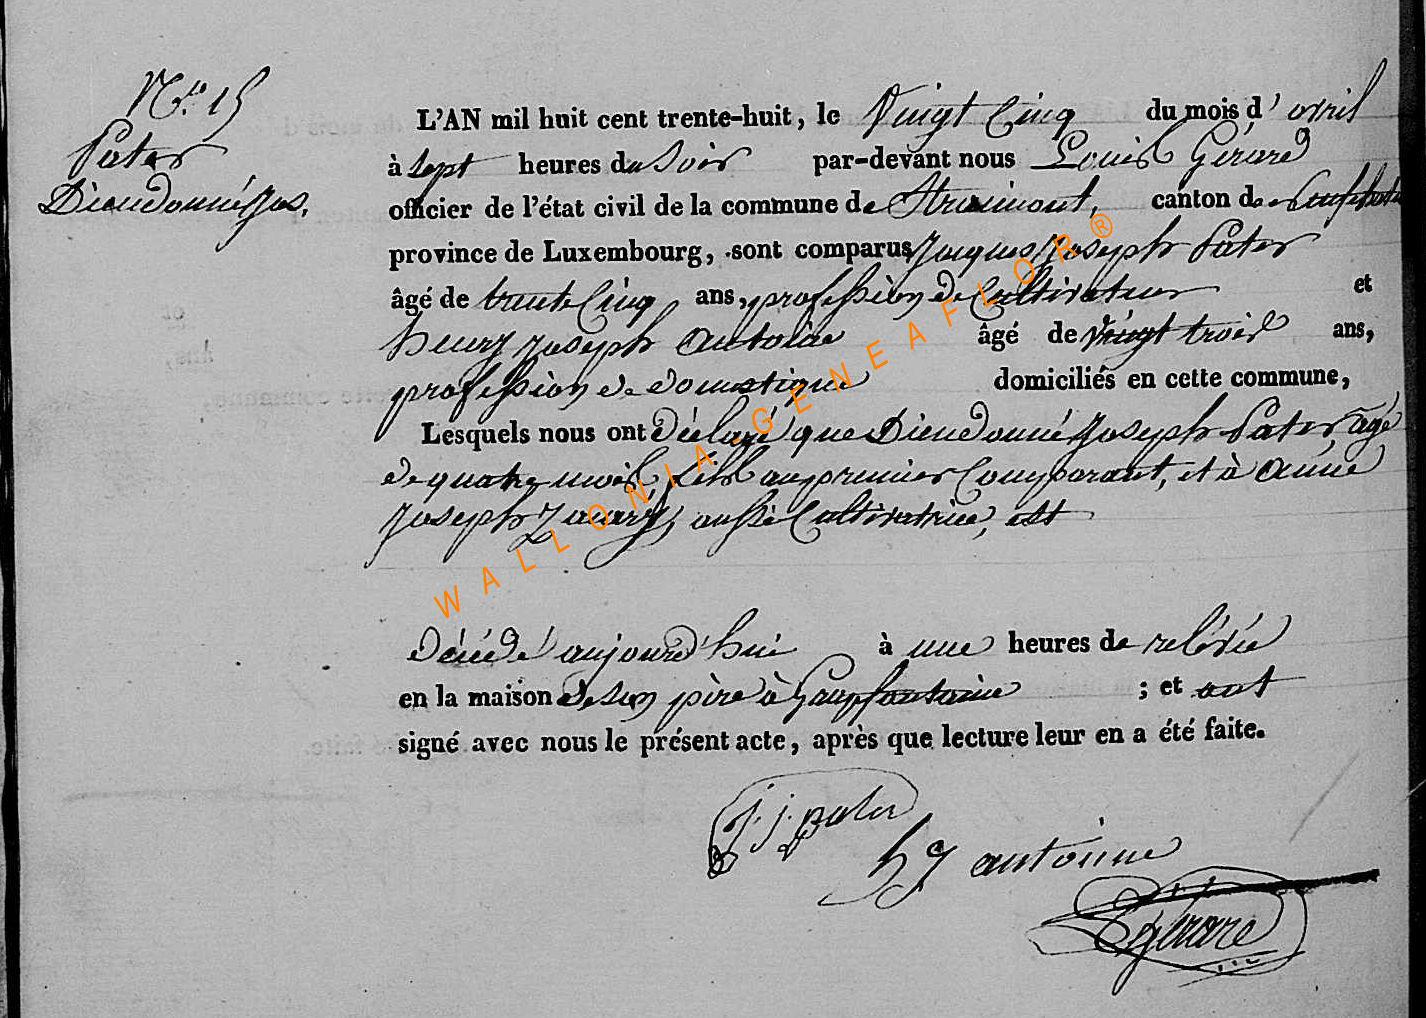 N.ro 15
Pater
Dieudonné Jos.
L'AN mil huit cent trente-huit, le Vingt Cinq du mois d' avril
à sept heures du Soir par-devant nous Louis Gérard
officier de l'état civil de la commune de Straimont, canton de Neufchateau
province de Luxembourg, sont comparus Jacques Joseph Pater
âgé de trente Cinq ans, profession de Cultivateur et
henry Joseph Antoine âgé de vingt trois ans,
profession de domestique domiciliés en cette commune,
Lesquels nous ont déclaré que Dieudonné Joseph Pater, âgé
de quatre mois, fils au premier Comparant, et à Anne
Joseph, aussi Cultivatrice, est
décédé aujourd'hui à une heures de relevée
en la maison de son père à ; et ont
signé avec nous le présent acte, après que lecture leur en a été faite.
J. J. Pater
h J antoinne
L Gérard
WALLONIA GENEAFLOR®